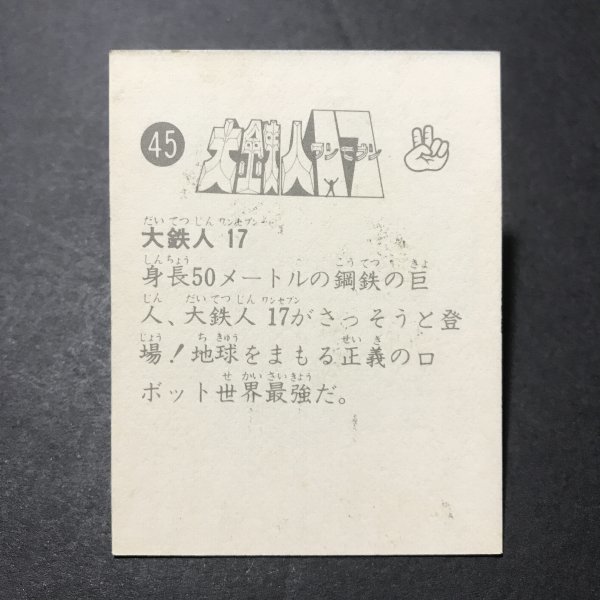 45 大鉄人17 ワンセブン
だいてつじんワンセブン
大鉄人 17
しんちょう こうてつ きょ
身長50メートルの鋼鉄の巨
じん だいてつじん ワンセブン
人、大鉄人 17がさっそうと登
じょう ちきゅう せいぎ
場!地球をまもる正義のロ
せかいさいきょう
ボット世界最強だ。